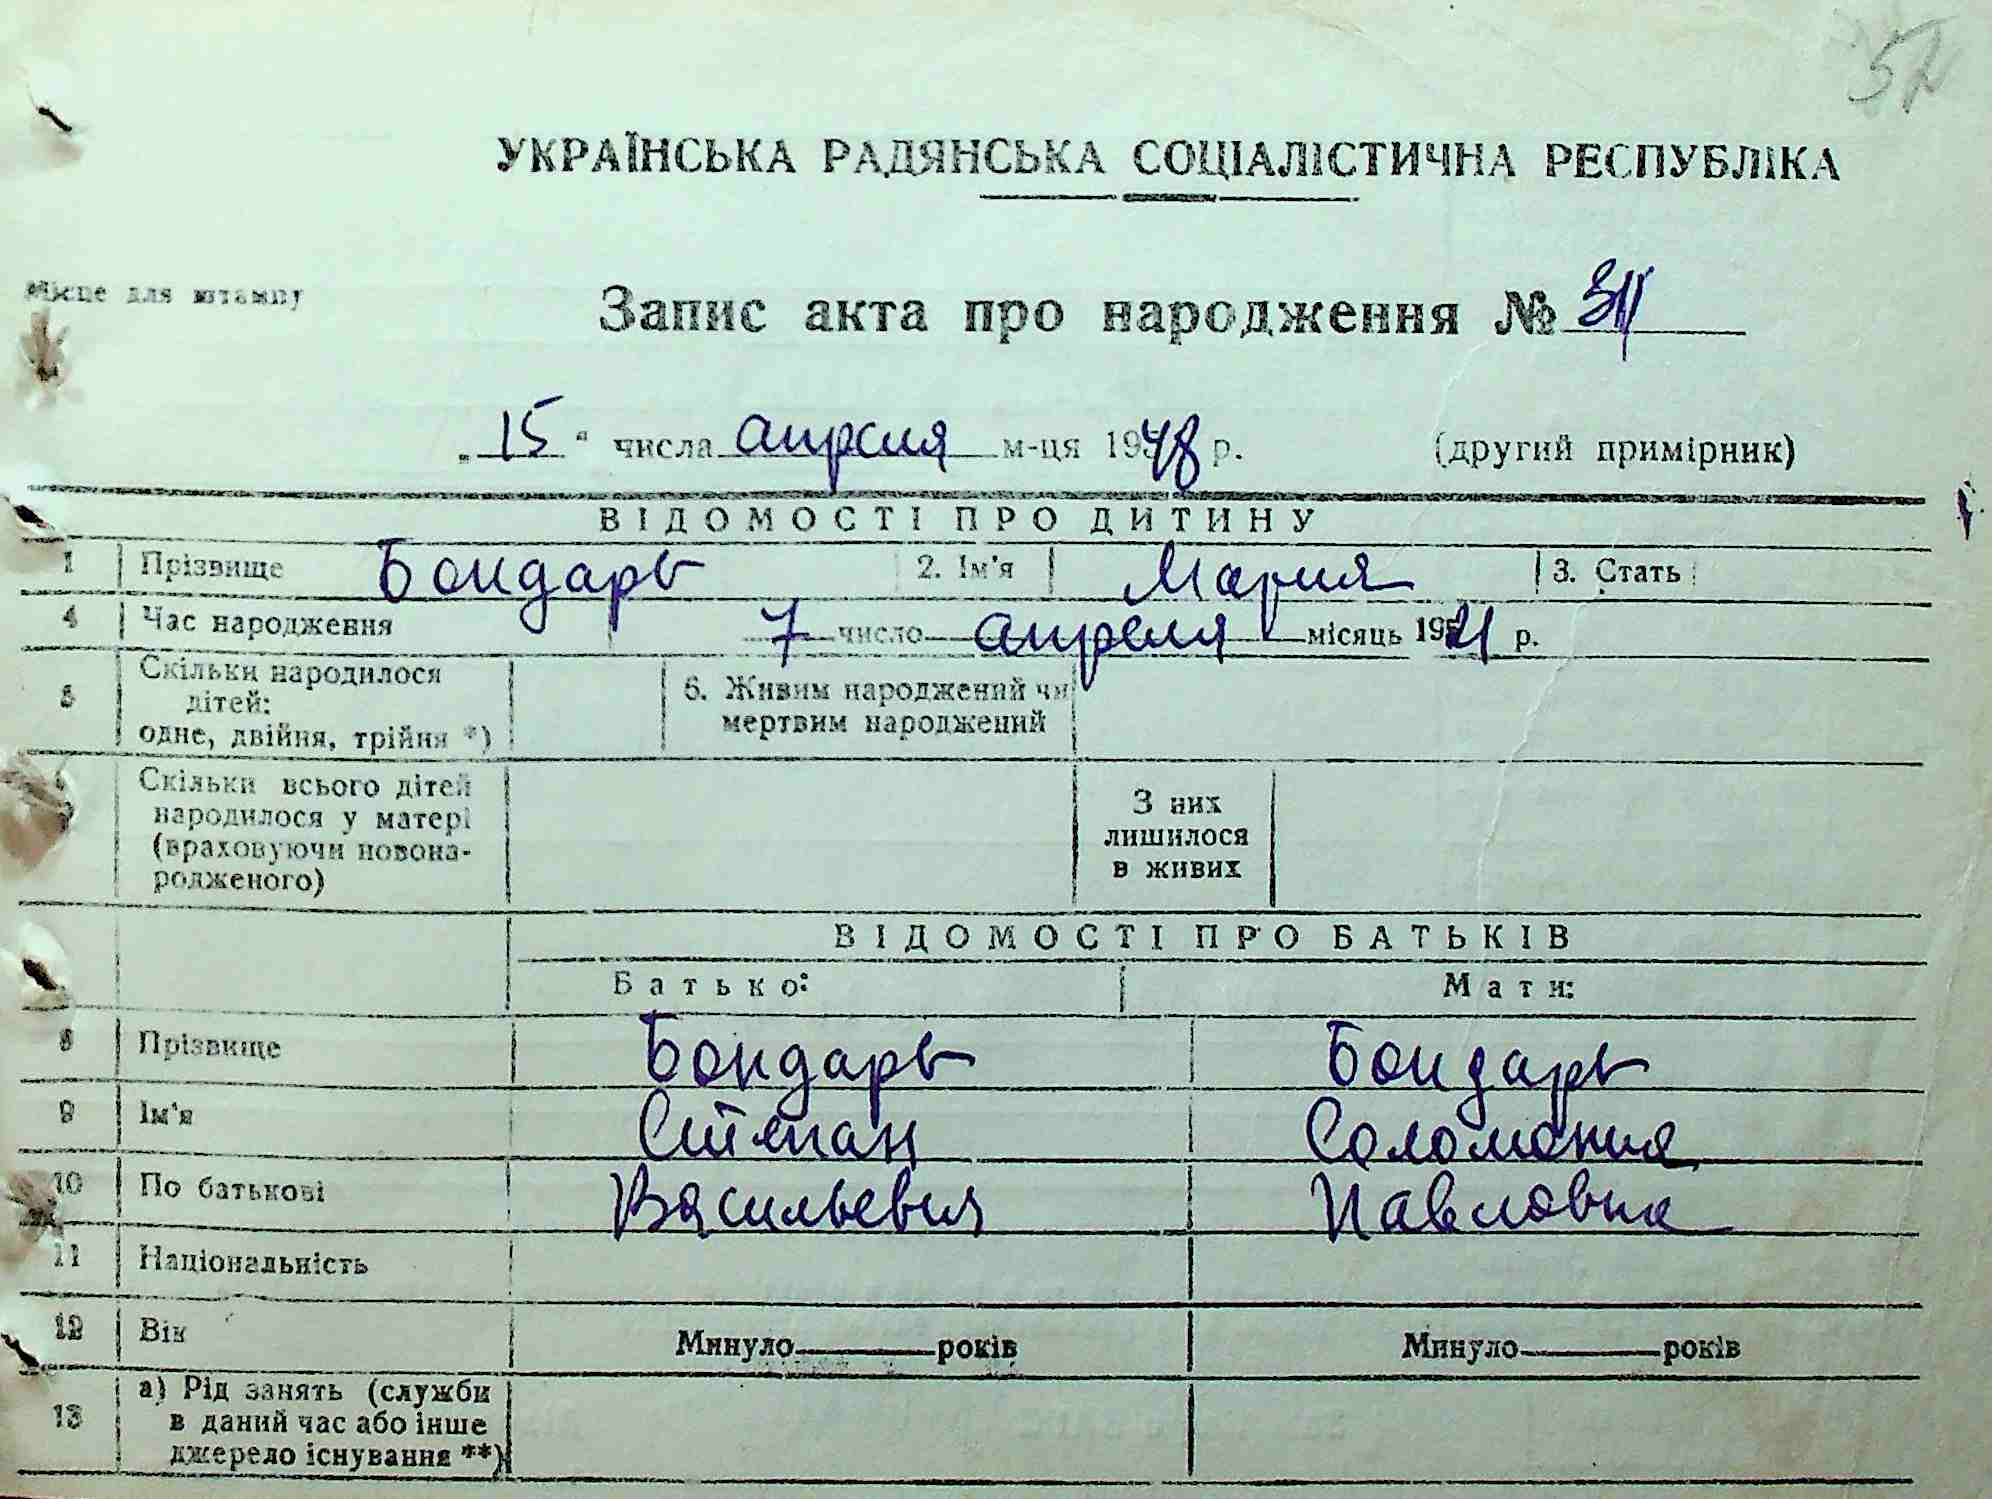 УКРАЇНСЬКА РАДЯНСЬКА СОЦІАЛІСТИЧНА РЕСПУБЛІКА
Місце для штампу
Запис акта про народження №
„15“ числа апреля м-ця 1948 р. (другий примірник)
ВІДОМОСТІ ПРО ДИТИНУ
1 Прізвище Бондарь 2. Ім'я Мария 3. Стать
4 Час народження 7 число апреля місяць 1921 р.
5 Скільки народилося дітей: одне, двійня, трійня *) 6. Живим народжений чи мертвим народжений
Скільки всього дітей народилося у матері (враховуючи новонародженого) З них лишилося в живих
ВІДОМОСТІ ПРО БАТЬКІВ
Батько: Мати:
8 Прізвище Бондарь Бондарь
9 Ім'я Степан Соломония
10 По батькові Васильевич Павловна
11 Національність
12 Вік Минуло років Минуло років
13 а) Рід занять (служби в даний час або інше джерело існування **)